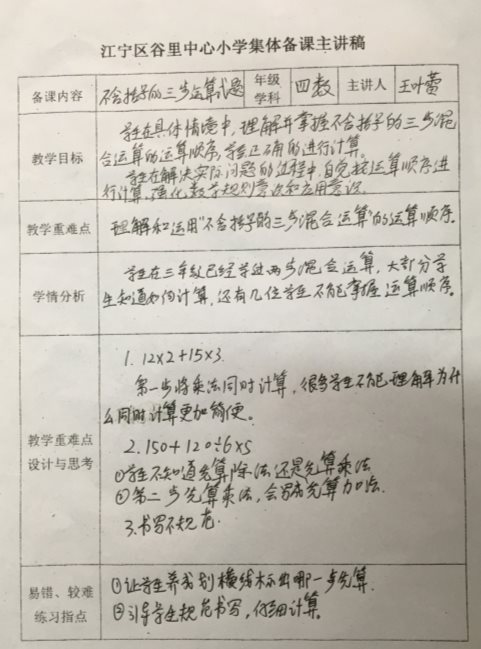 江宁区谷里中心小学集体备课主讲稿
备课内容 不含括号的三步运算试题 年级学科 四数 主讲人 王叶蕾
教学目标
学生在具体情境中，理解并掌握不含括号的三步混
合运算的运算顺序，学生正确的进行计算。
学生在解决实际问题的过程中，自觉按运算顺序进
行计算，强化数学规则意识和应用意识。
教学重难点 理解和运用"不含括号的三步混合运算"的运算顺序。
学情分析
学生在三年级已经学过两步混合运算，大部分学
生知道如何计算，还有几位学生不能掌握运算顺序。
教学重难点
设计与思考
1. 12×2+15×3.
第一步将乘法同时计算，很多学生不能理解为什
么同时计算更加简便。
2. 150+120÷6×5
①学生不知道先算除法还是先算乘法
②第二步先算乘法，会写成先算加法.
3. 书写不规范.
易错、较难
练习指点
①让学生养成划横线标出哪一步先算.
②引导学生规范书写，仔细计算。